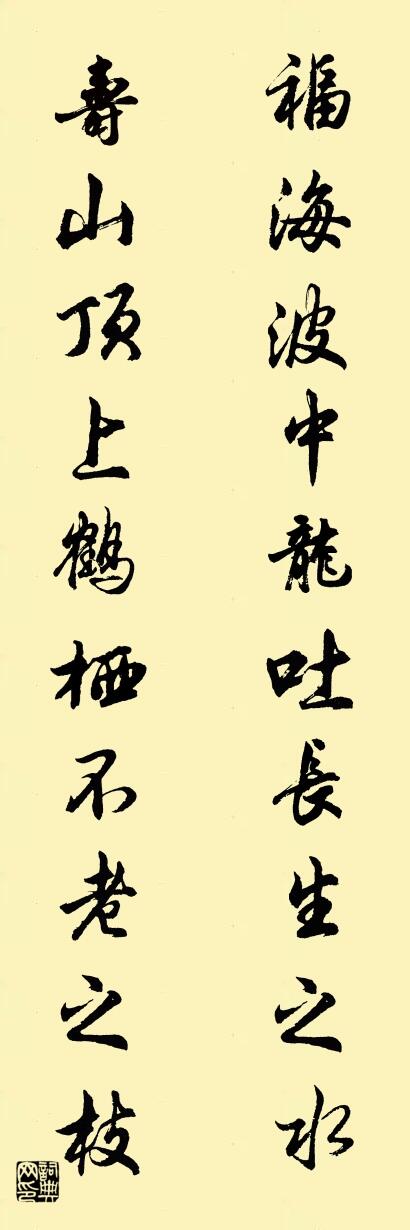 福海波中龍吐長生之水
壽山頂上鶴栖不老之枝
詞典網印